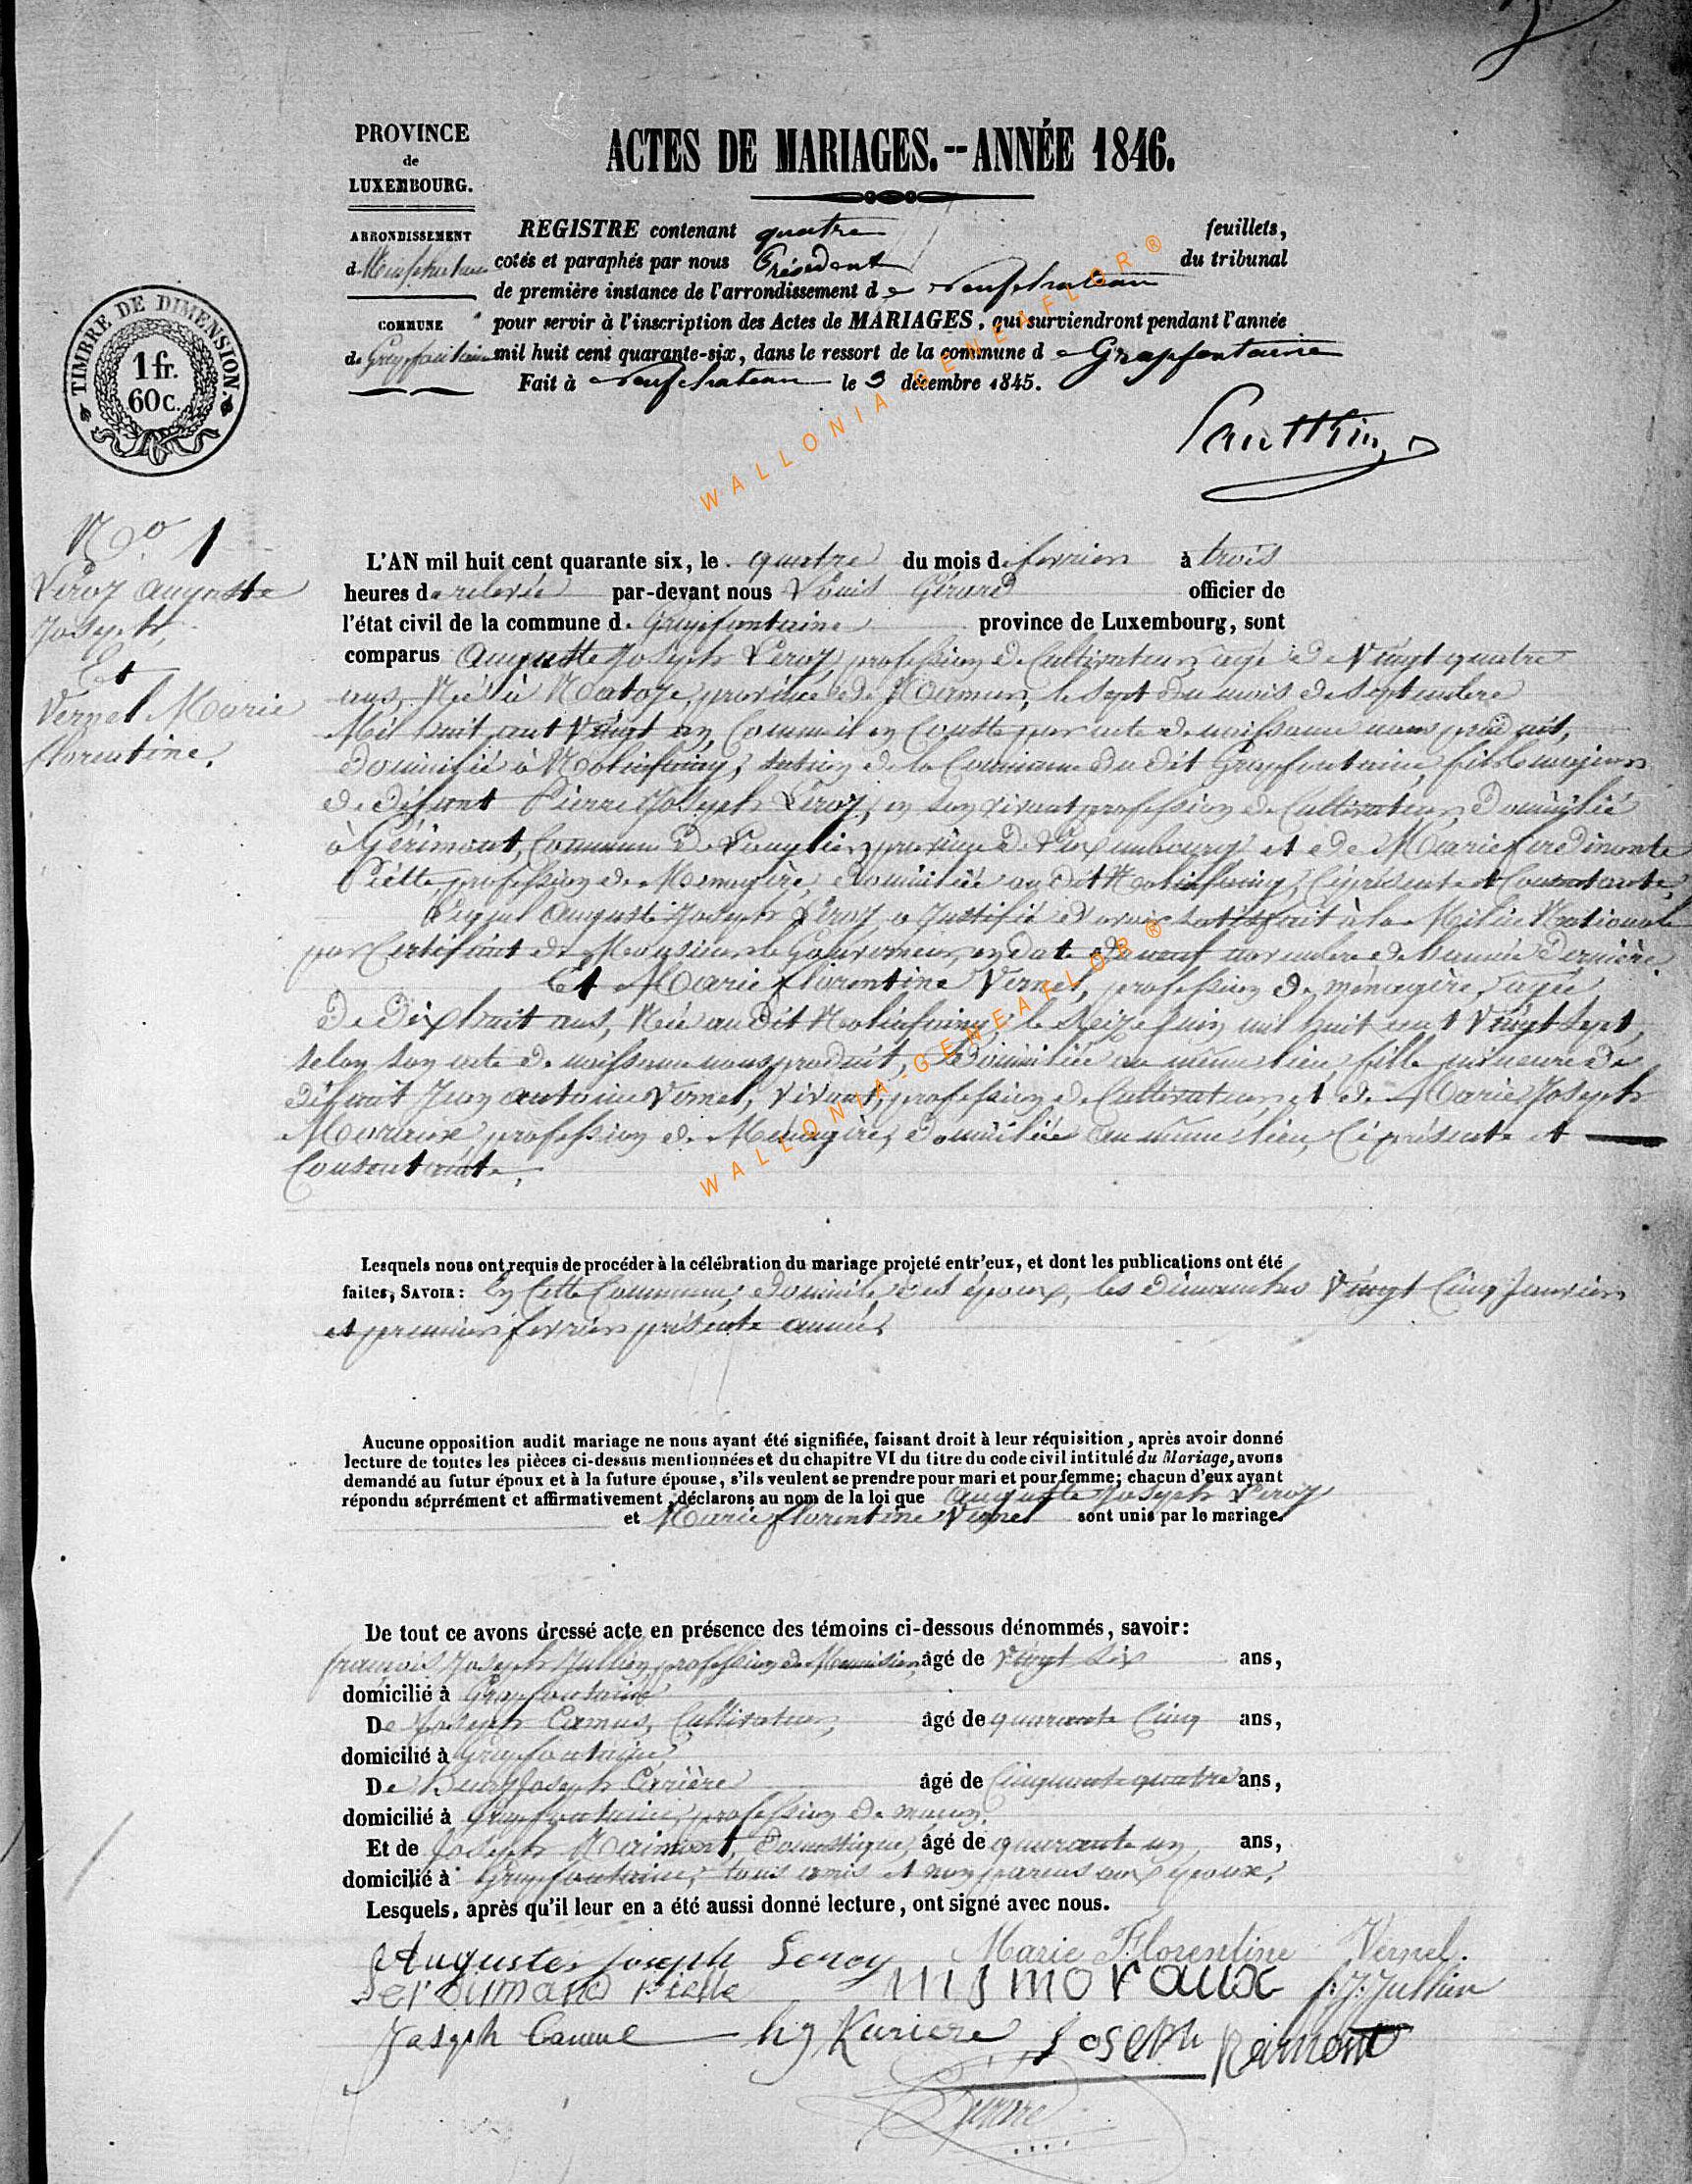 PROVINCE
de
LUXEMBOURG.
ARRONDISSEMENT
de Neufchateau
COMMUNE
de Grapfontaine
ACTES DE MARIAGES.--ANNÉE 1846.
REGISTRE contenant quatre feuillets,
cotés et paraphés par nous Président du tribunal
de première instance de l'arrondissement de Neufchateau
pour servir à l'inscription des Actes de MARIAGES, qui surviendront pendant l'année
mil huit cent quarante-six, dans le ressort de la commune de Grapfontaine
Fait à Neufchateau le 3 décembre 1845.
TIMBRE DE DIMENSION
1 fr.
60 c.
WALLONIA-GENEAFLOR ®
No. 1
Leroy Auguste
Joseph,
Et
Vernel Marie
florentine.
L'AN mil huit cent quarante six, le quatre du mois de fevrier à trois
heures de relevée par-devant nous Louis Gérard officier de
l'état civil de la commune de Grapfontaine province de Luxembourg, sont
comparus Auguste Joseph Leroy, profession de Cultivateur, agé de Vingt quatre
ans, Né à Matoze, province de Namur, le sept du mois de septembre
Mil huit cent Vingt un, Comme il en Conste par acte de naissance nous produit,
domicilié à Molinfaing, section de la Commune du dit Grapfontaine, fils majeur
de défunt Pierre Joseph Leroy, en son vivant profession de Cultivateur, Domicilié
à Gérimont, Commune de province de Luxembourg et de Marie ferdinante
Piette, profession de Menagère, domiciliée au dit Molinfaing, Ci présente et Consentante,
Lequel Auguste Joseph Leroy a Justifié d'avoir satisfait à la Milice Nationale
par Certificat de Monsieur le Gouverneur, en date du neuf novembre de l'année Dernière
Et Marie florentine Vernel, profession de ménagère, agée
de dix huit ans, Née au dit Molinfaing, le Seize Juin mil huit cent Vingt sept,
selon son acte de naissance nous produit, Domiciliée au même lieu, fille mineure de
défunt Jean antoine Vernel, vivant, profession de Cultivateur et de Marie Joseph
Moraux profession de Menagère, domiciliée au même lieu, Ci présente et
Consentante,
Lesquels nous ont requis de procéder à la célébration du mariage projeté entr'eux, et dont les publications ont été
faites, SAVOIR: En Cette Commune, domicile des époux, les dimanches Vingt Cinq Janvier
et premier fevrier présente année,
Aucune opposition audit mariage ne nous ayant été signifiée, faisant droit à leur réquisition, après avoir donné
lecture de toutes les pièces ci-dessus mentionnées et du chapitre VI du titre du code civil intitulé du Mariage, avons
demandé au futur époux et à la future épouse, s'ils veulent se prendre pour mari et pour femme; chacun d'eux ayant
répondu séprrément et affirmativement, déclarons au nom de la loi que Auguste Joseph Leroy
et Marie florentine Vernel sont unis par le mariage.
De tout ce avons dressé acte en présence des témoins ci-dessous dénommés, savoir:
françois Joseph Jullien, profession de Menuisier, âgé de Vingt six ans,
domicilié à Grapfontaine
De Joseph Camus, Cultivateur, âgé de quarante Cinq ans,
domicilié à Grapfontaine,
De Henry Joseph Carière âgé de Cinquante quatre ans,
domicilié à Grapfontaine, profession de maçon,
Et de Joseph Raimont, Domestique, âgé de quarante un ans,
domicilié à Grapfontaine, tous amis et non parens aux époux,
Lesquels, après qu'il leur en a été aussi donné lecture, ont signé avec nous.
Auguste joseph Leroy Marie Florentine Vernel.
ferdimand Piette mjmoraux f.J.Jullien
Joseph Camus hj Kariere joseph Reimont
WALLONIA-GENEAFLOR ®